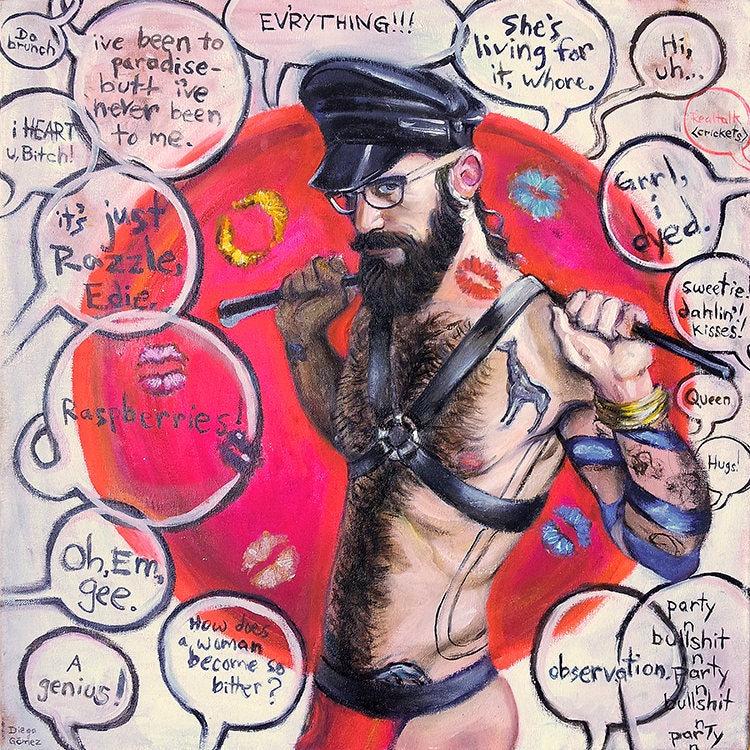 Do
brunch
ive been to
paradise-
butt ive
never been
to me.
EV'RYTHING!!!
She's
living for
it, whore.
Hi,
uh...
Realtalk
<crickets>
i HEART
u, Bitch!
Grrl,
i
dyed.
it's just
Razzle,
Edie.
sweetie!
dahlin'!
kisses!
Raspberries!
Queen
Hugs!
Oh, Em,
gee.
A
genius!
How does
a woman
become so
bitter?
observation.
party
n
bullshit
n
party
n
bullshit
n
party
n
Diego
Gómez